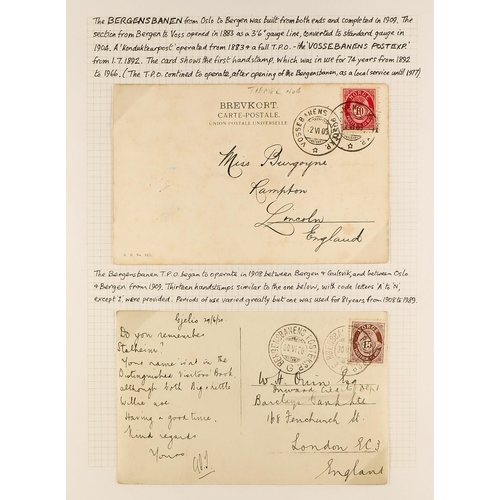 The BERGENSBANEN from Oslo to Bergen was built from both ends and completed in 1909. The
section from Bergen to Voss opened in 1883 as a 3'6" gauge line, converted to standard gauge in
1904. A 'Kondukteurpost' operated from 1883 & a full T.P.O. - the 'VOSSEBANENS POSTEXP.'
from 1.7.1892. The card shows the first handstamp, which was in use for 74 years from 1892
to 1966. (The T.P.O. continued to operate, after opening of the Bergensbanen, as a local service until 1977)
BREVKORT.
CARTE-POSTALE.
UNION POSTALE UNIVERSELLE
NORGE
10
VOSSEBANENS
Miss Burgoyne
Rampton
Lincoln
England
The Bergensbanen T.P.O. began to operate in 1908 between Bergen & Gulsvik, and between Oslo
& Bergen from 1909. Thirteen handstamps similar to the one below, with code letters 'A' to 'N',
except 'I', were provided. Periods of use varied greatly but one was used for 81 years from 1908 to 1989.
Do you remember
Stalheim?
Your name is in the
Distinguished Visitors' Book
although both Big & little
Willie are
Having a good time.
Kind regards
Yours
BERGENSBANENS POSTEXP.
G
NORGE
15
W. H. Esq
Barclays Bank Ltd
168 Fenchurch St.
London EC3
England